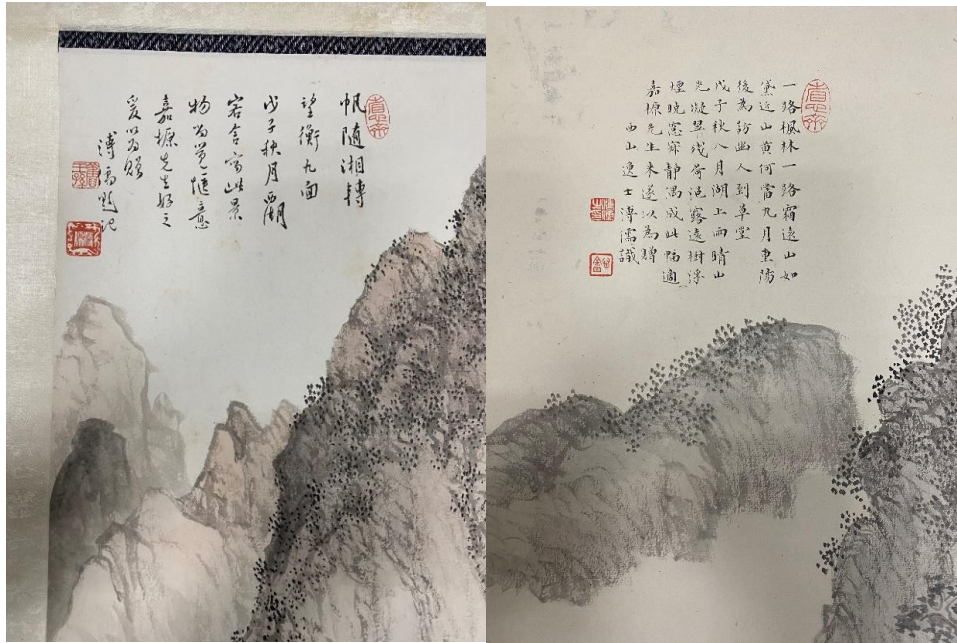 帆随湘轉
望衡九面
戊子秋月西湖
客舍寫此景
物為覺惬意
嘉塬先生好之
爰以為贈
溥儒題記
一路楓林一路霜遠山如
黛近山黄何當九月重陽
後為訪幽人到草堂
戊子秋八月湖上雨晴山
光凝翠殘荷浥露遠樹浮
煙晚窓寂静寫成此幅適
嘉塬先生来遂以為贈
西山逸士溥儒識